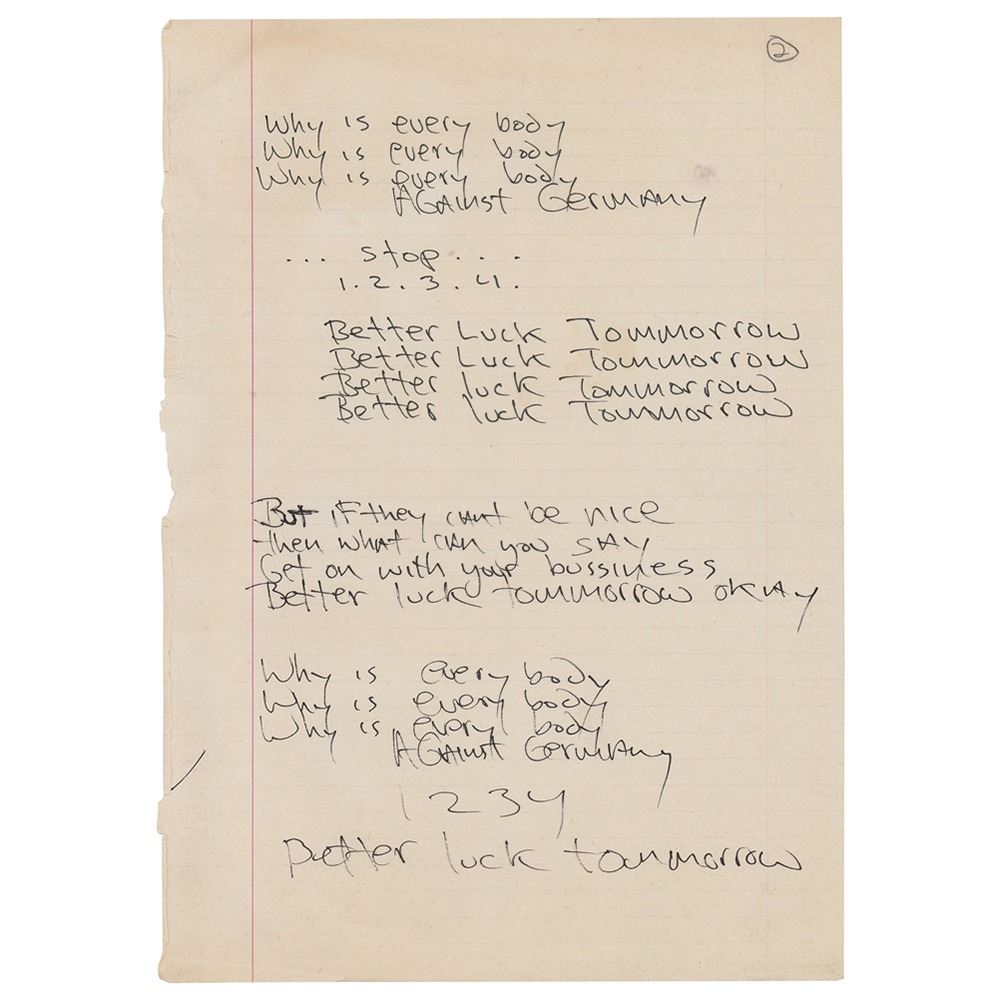 2
Why is every body
Why is every body
Why is every body
AGAinst GermANy
... stop ....
1.2.3.4.
Better Luck Tommorrow
Better Luck Tommorrow
Better luck Tommorrow
Better luck Tommorrow
But if they cANt be nice
then whAt cAN you SAY
Get on with your bussiness
Better luck tommorrow okAy
Why is every body
Why is every body
Why is every body
AGAinst GermANy
1234
Better luck tommorrow